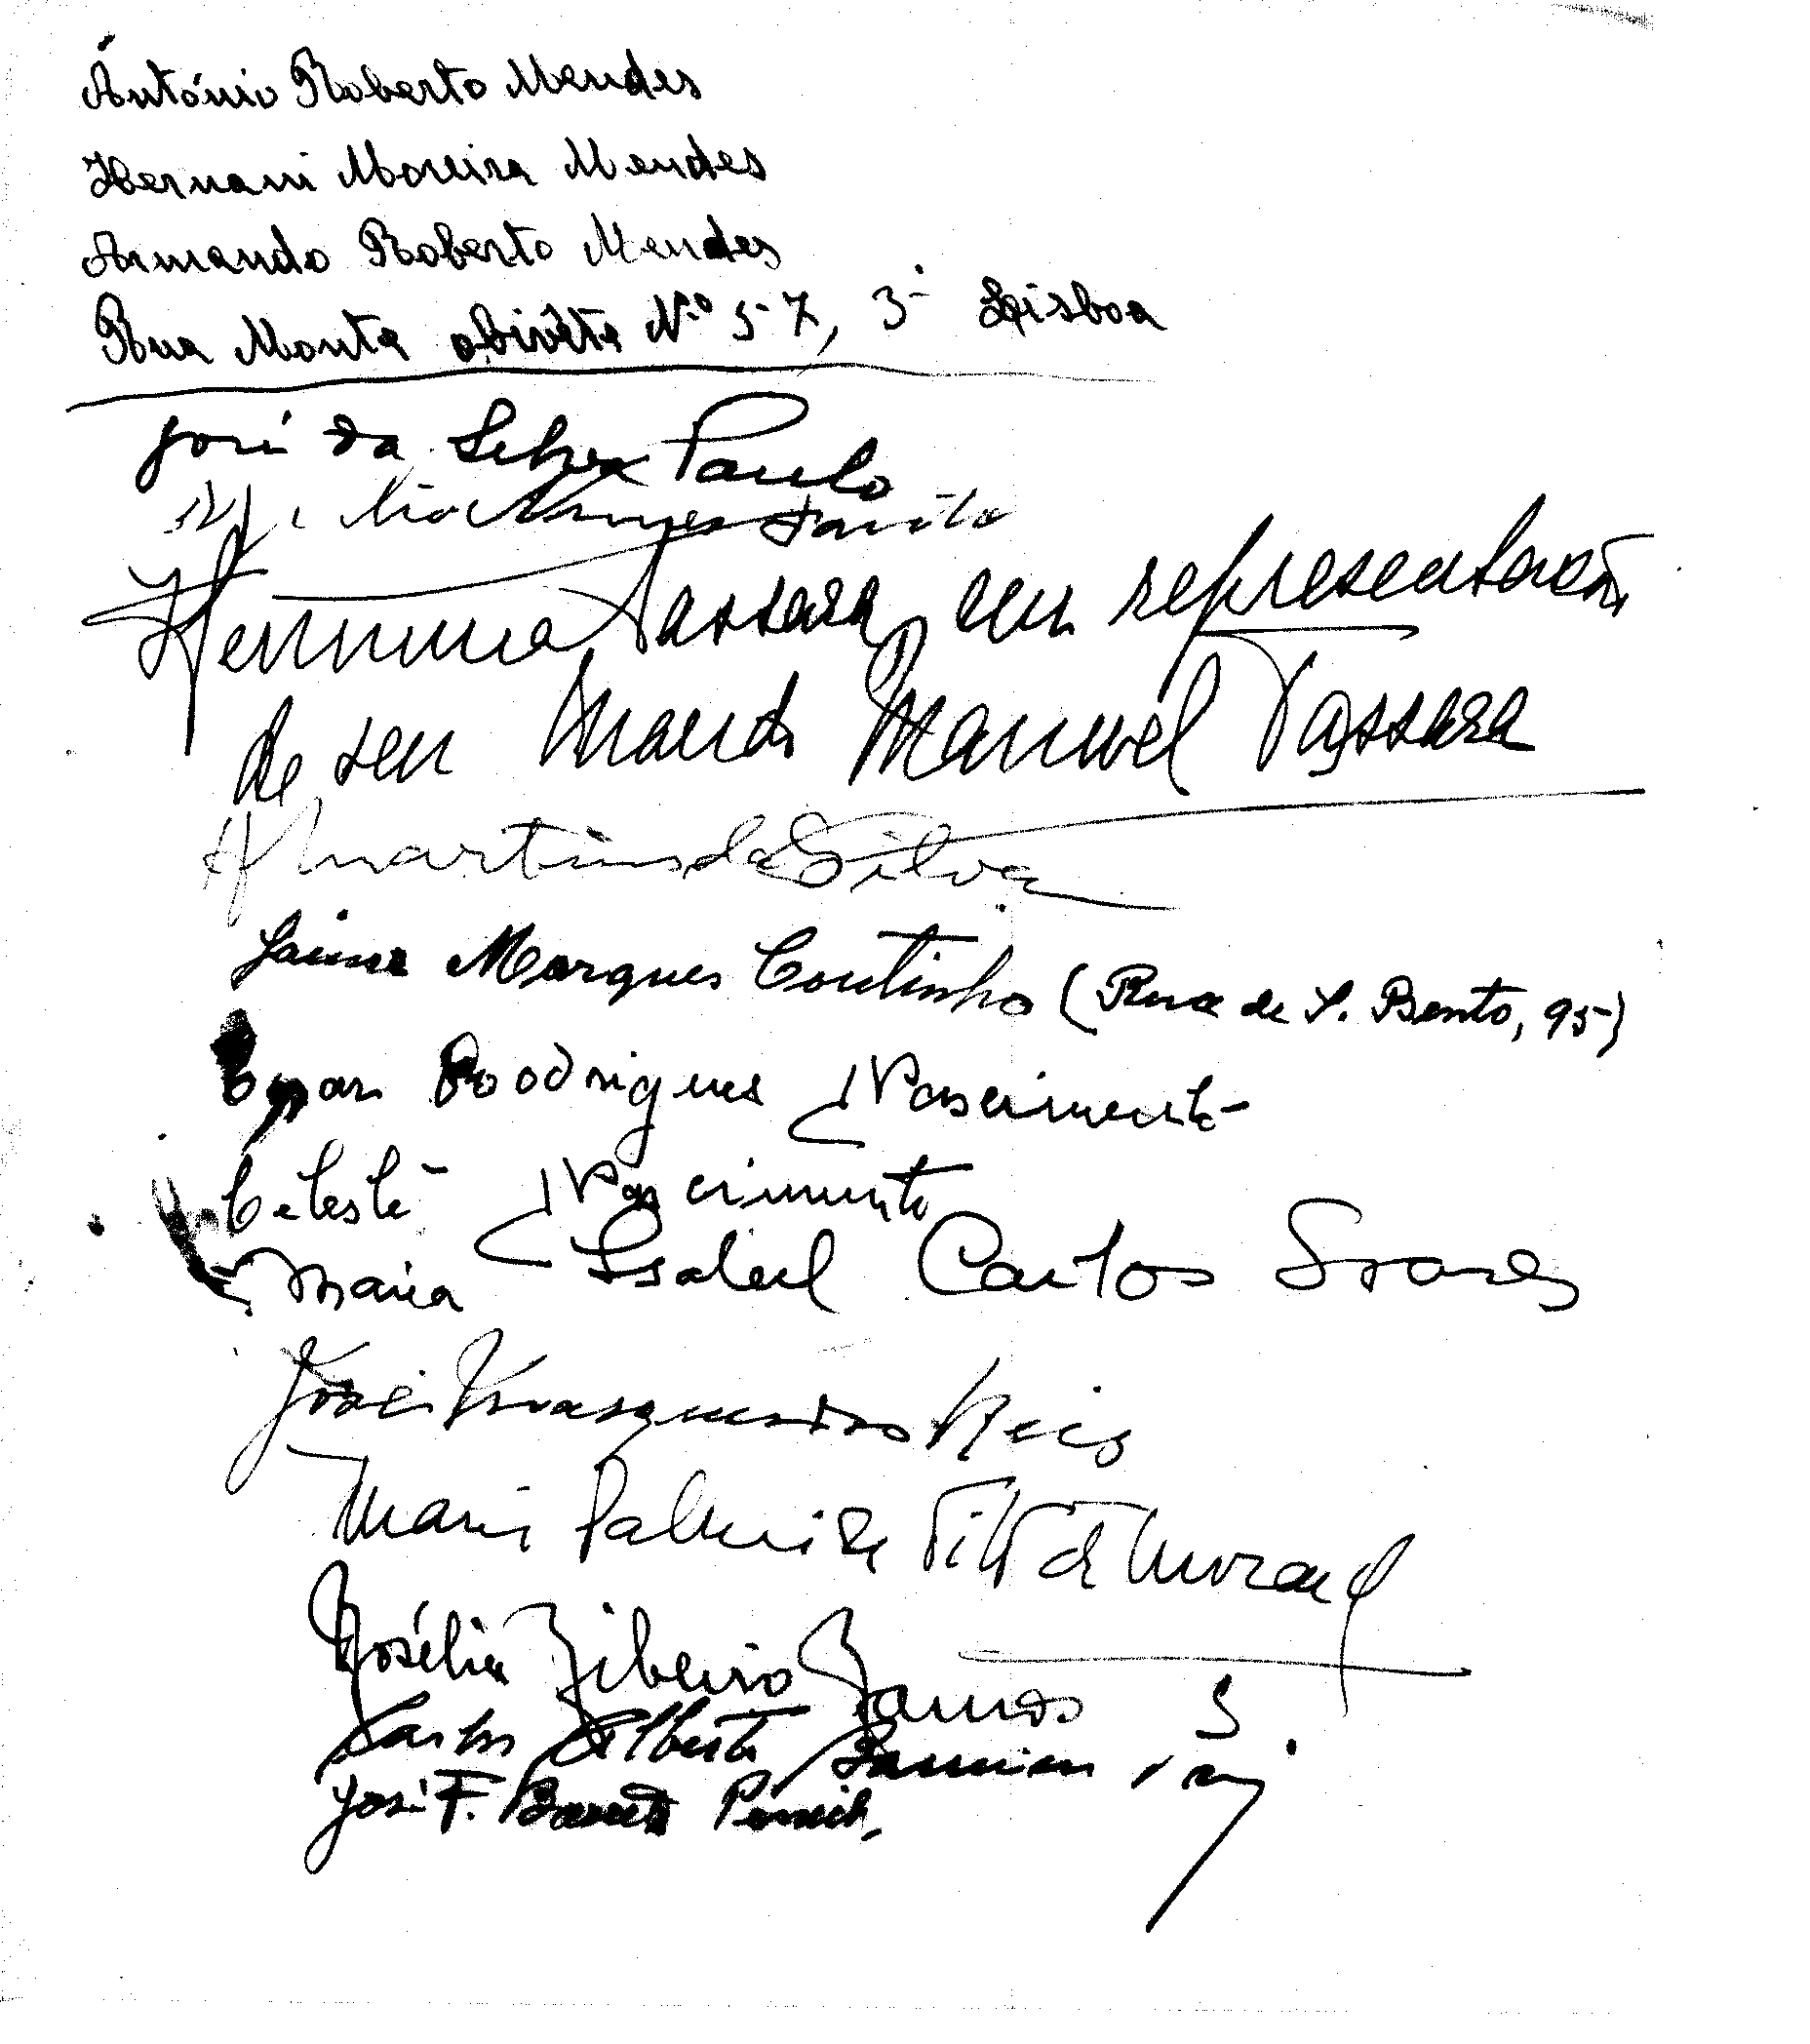 António Roberto Mendes
Hernani Moreira Mendes
Armando Roberto Mendes
Rua Monte Nº 57, 3º Lisboa
José da Silva Paulo
Nunes
Tassara, em representação
de seu marido Manuel Tassara
Martins da Silva
Jaime Marques Coutinho (Rua de S. Bento, 95)
Rodrigues Nascimento
Celeste Nascimento
Maria Isabel Carlos Soares
José Vasques dos Reis
Maria Palmira Tito de Morais
Rosélia Ribeiro Ramos
Carlos Alberto
José F. Barreto